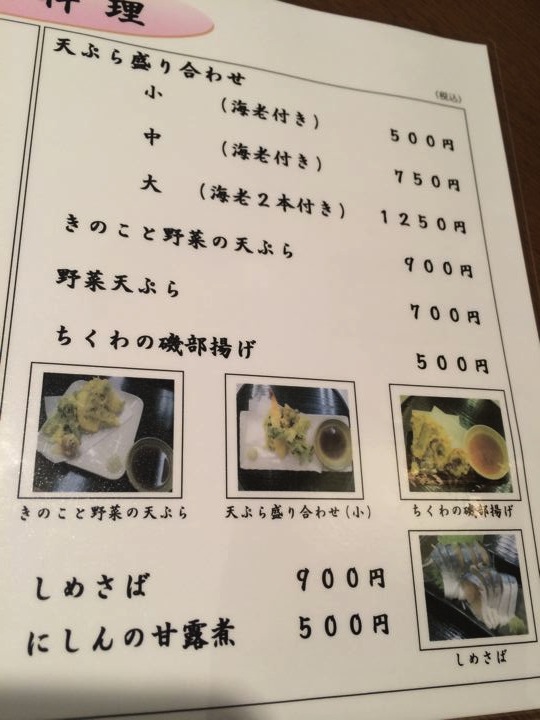 料理
天ぷら盛り合わせ
(税込)
小 (海老付き) 500円
中 (海老付き) 750円
大 (海老2本付き) 1250円
きのこと野菜の天ぷら 900円
野菜天ぷら 700円
ちくわの磯部揚げ 500円
きのこと野菜の天ぷら
天ぷら盛り合わせ(小)
ちくわの磯部揚げ
しめさば 900円
にしんの甘露煮 500円
しめさば